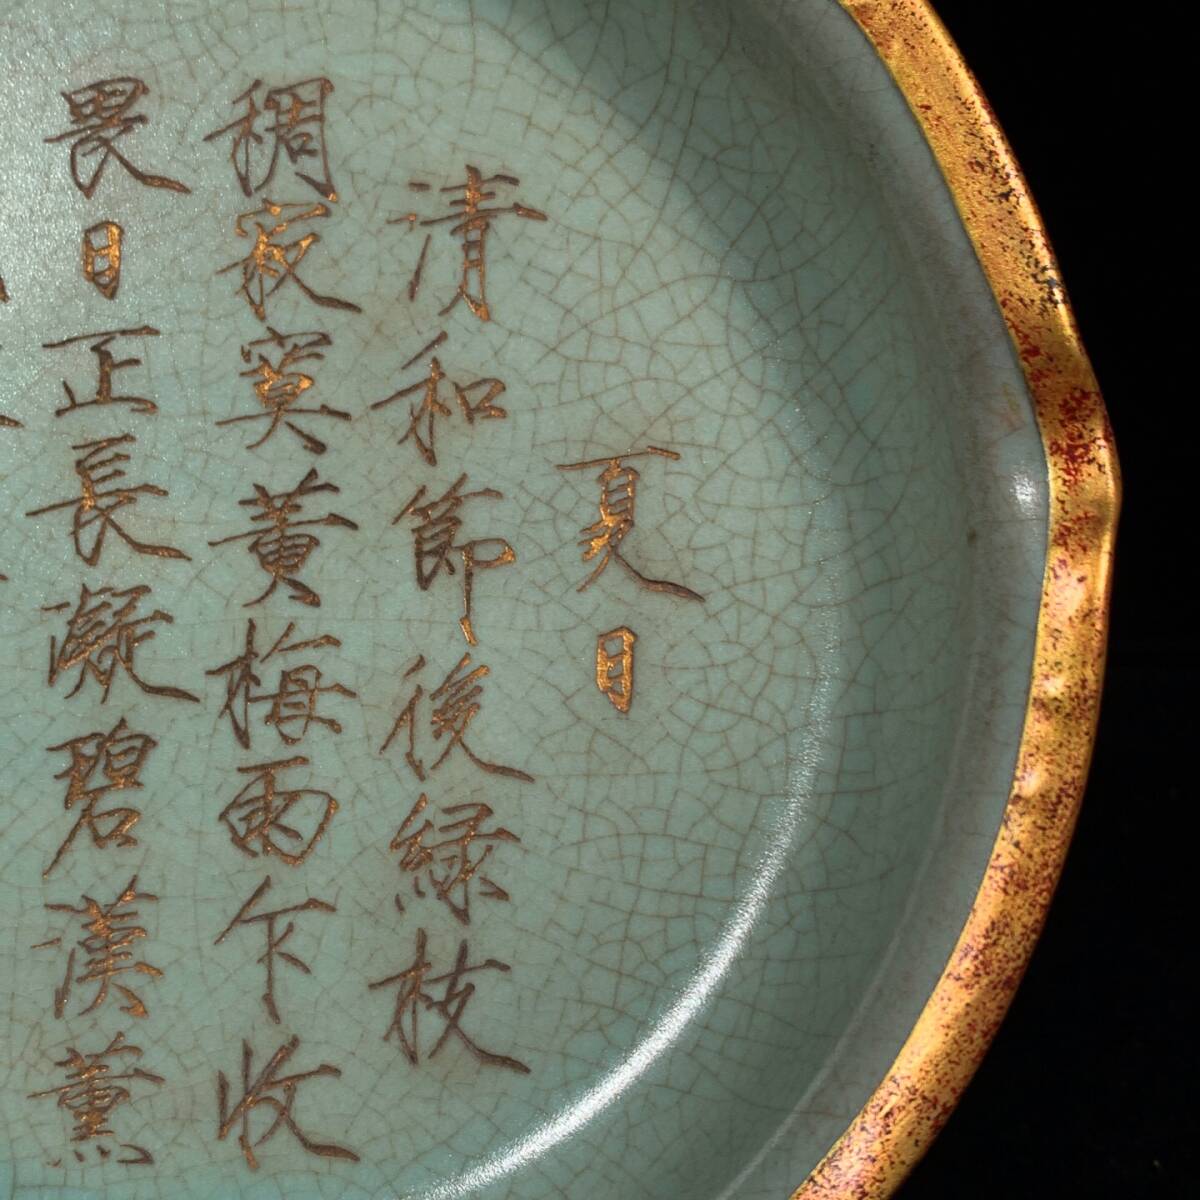 夏日
清和節後綠枝
稠寂寞黃梅雨乍收
畏日正長凝碧漢薰